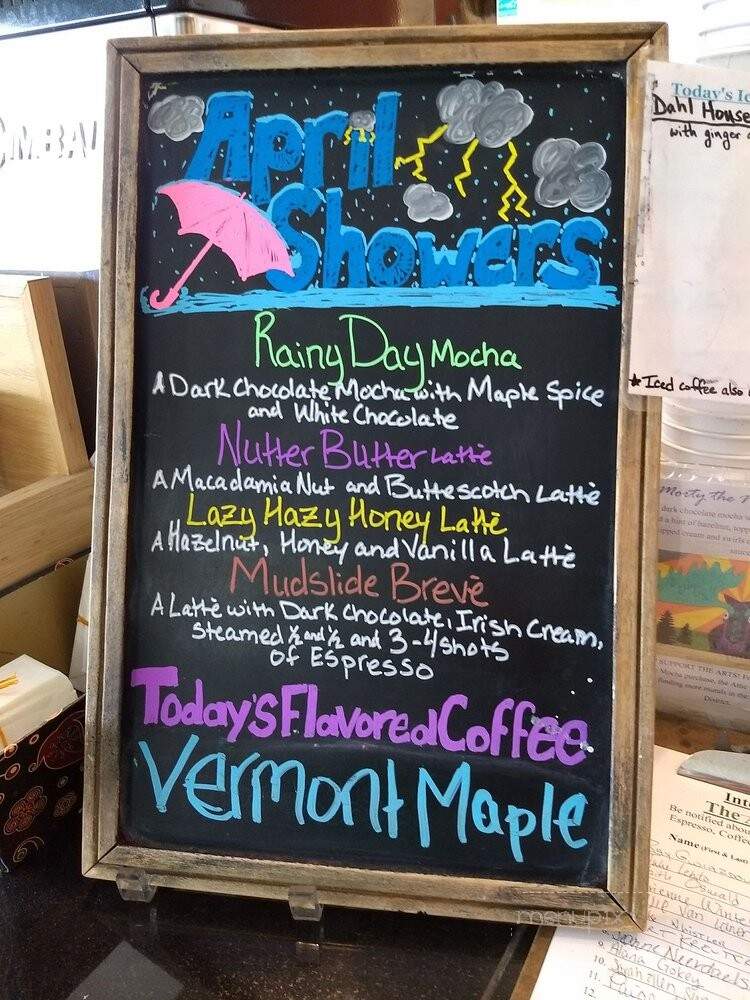 April
Showers
Rainy Day Mocha
A Dark Chocolate Mocha with Maple Spice
and White Chocolate
Nutter Butter Lattè
A Macadamia Nut and Butterscotch Lattè
Lazy Hazy Honey Lattè
A Hazelnut, Honey and Vanilla Lattè
Mudslide Brevè
A Lattè with Dark Chocolate, Irish Cream,
Steamed ½ and ½ and 3-4 shots
of Espresso
Today's Flavored Coffee
Vermont Maple
Today's
Dahl House
with ginger
★ Iced coffee also
Morty the
dark chocolate mocha
hint of hazelnut,
SUPPORT THE ARTS!
Mocha purchase, the
District.
The
Be notified
Espresso, Coffee
Name (First &
Oswald
Van
9.
10. Alana Gokey
11.
12.